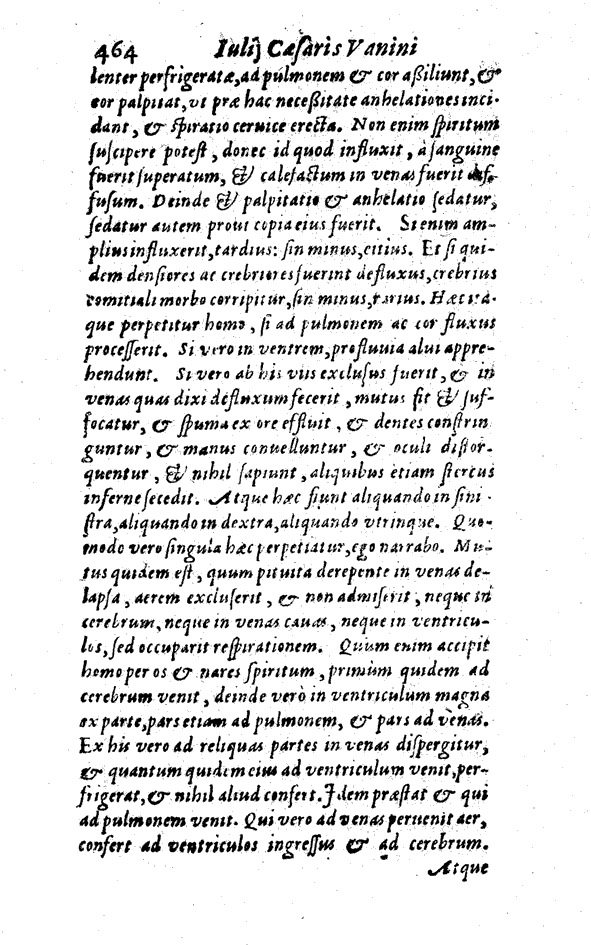 464 Iulij Cæſaris Vanini
lenter perfrigeratæ, ad pulmonem & cor aßiliunt, &
cor palpitat, vt præ hac neceßitate anhelationes inci-
dant, & ſpiratio ceruice erecta. Non enim ſpiritum
ſuſcipere poteſt, donec id quod influxit, à ſanguine
fuerit ſuperatum, & calefactum in venas fuerit dif-
fuſum. Deinde & palpitatio & anhelatio ſedatur,
ſedatur autem prout copia eius fuerit. Si enim am-
plius influxerit, tardius: ſin minus, citius. Et ſi qui-
dem denſiores ac crebriores fuerint defluxus, crebrius
comitiali morbo corripitur, ſin minus, rarius. Hæc ita-
que perpetitur homo, ſi ad pulmonem ac cor fluxus
proceſſerit. Si vero in ventrem, profluuia alui appre-
hendunt. Si vero ab his viis excluſus fuerit, & in
venas quas dixi defluxum fecerit, mutus fit & ſuf-
focatur, & ſpuma ex ore effluit, & dentes conſtrin
guntur, & manus conuelluntur, & oculi diſtor-
quentur, & nihil ſapiunt, aliquibus etiam ſtercus
inferne ſecedit. Atque hæc fiunt aliquando in ſini-
ſtra, aliquando in dextra, aliquando vtrinque. Quo-
modo vero ſingula hæc perpetiatur, ego narrabo. Mu-
tus quidem eſt, quum pituita derepente in venas de-
lapſa, aerem excluſerit, & non admiſerit, neque in
cerebrum, neque in venas cauas, neque in ventricu-
los, ſed occuparit reſpirationem. Quum enim accipit
homo per os & nares ſpiritum, primùm quidem ad
cerebrum venit, deinde verò in ventriculum magna
ex parte, pars etiam ad pulmonem, & pars ad venas.
Ex his vero ad reliquas partes in venas diſpergitur,
& quantum quidem eius ad ventriculum venit, per-
frigerat, & nihil aliud confert. Idem præſtat & qui
ad pulmonem venit. Qui vero ad venas peruenit aer,
confert ad ventriculos ingreſſus & ad cerebrum.
Atque